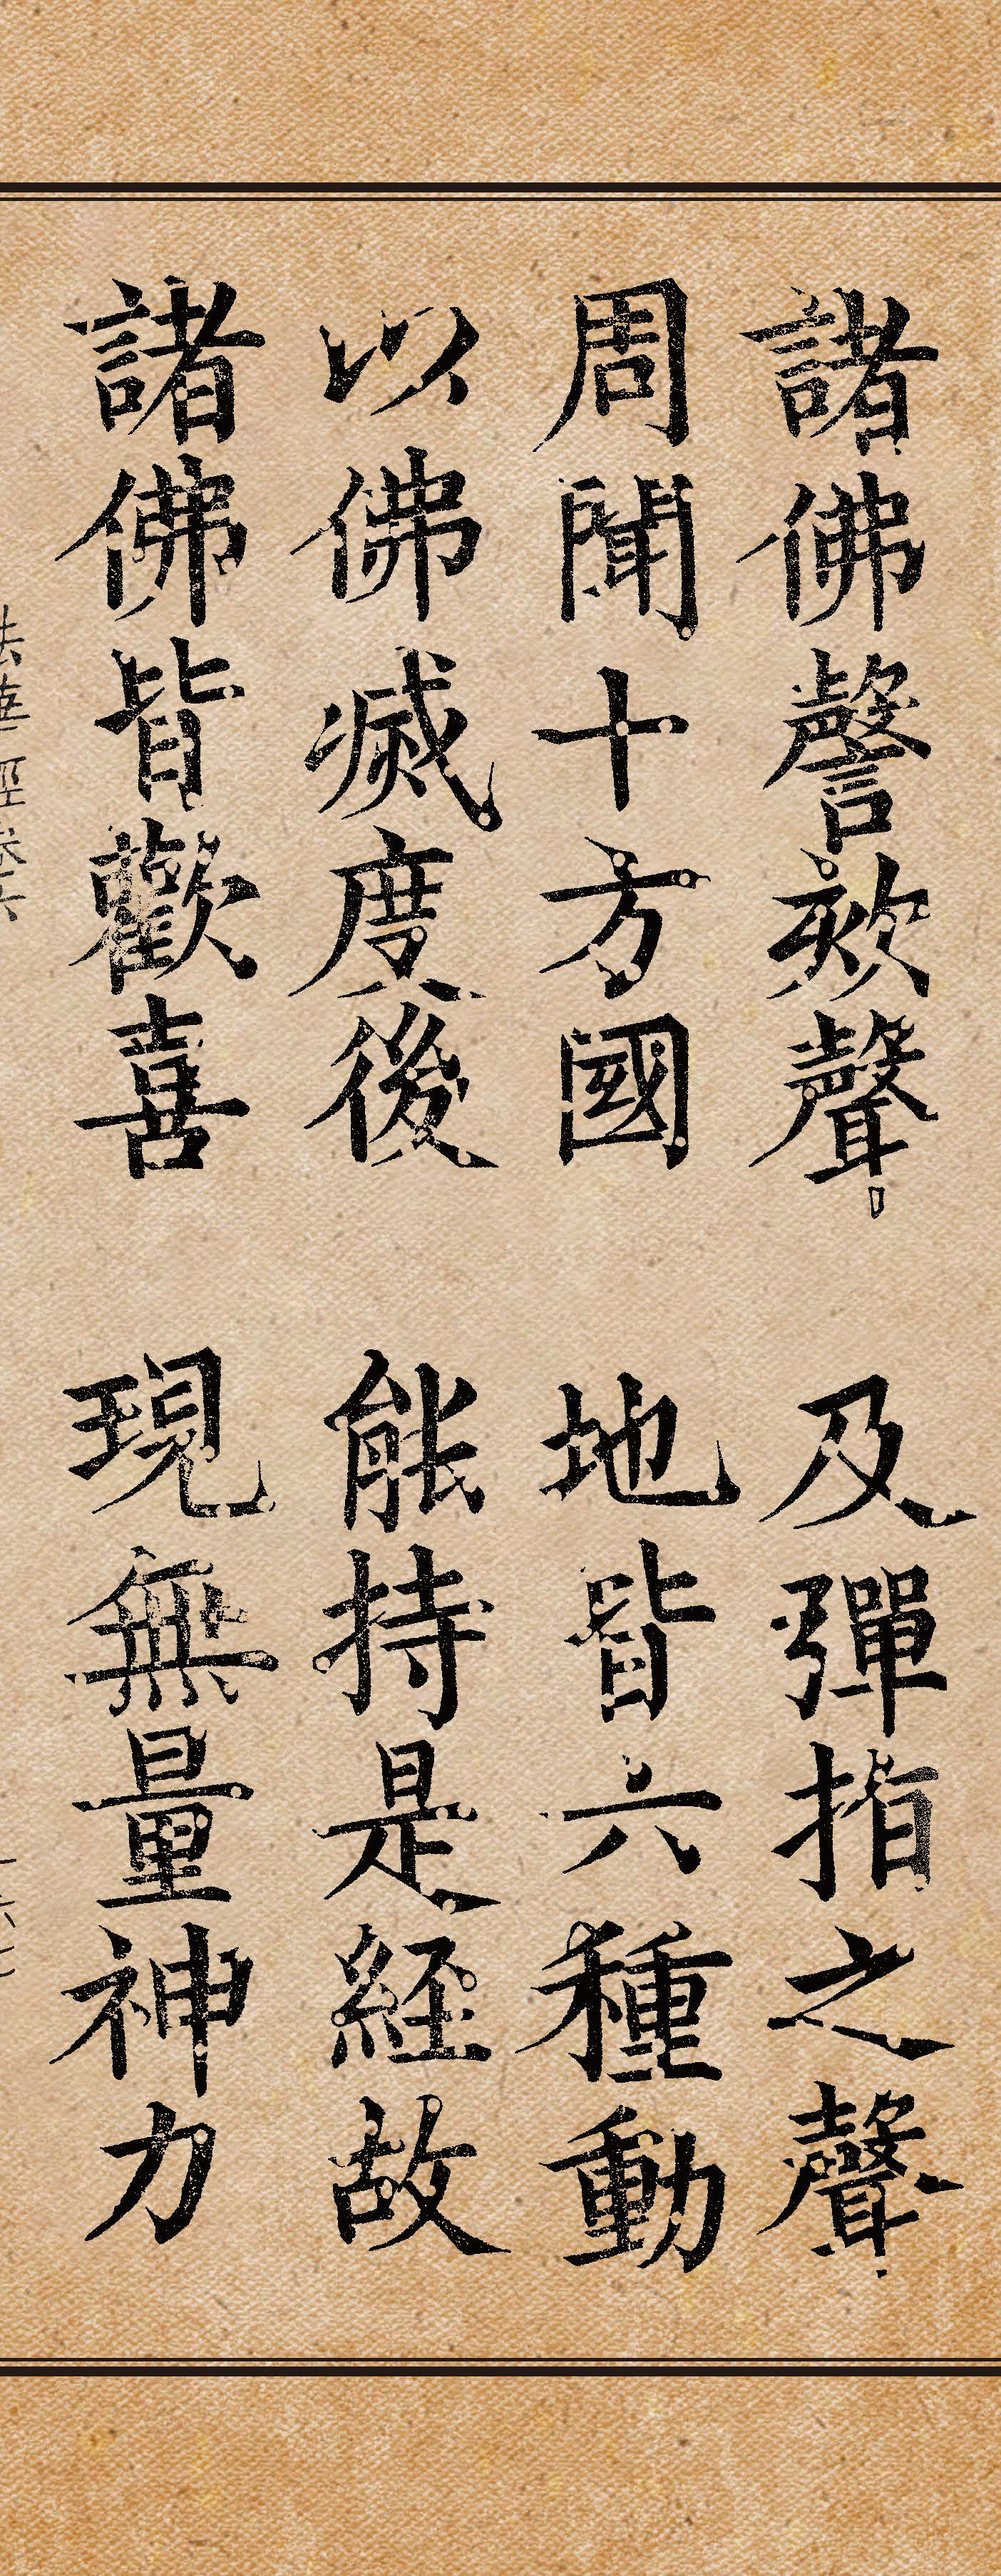 諸佛謦欬聲 及彈指之聲
周聞十方國 地皆六種動
以佛滅度後 能持是経故
諸佛皆歡喜 現無量神力